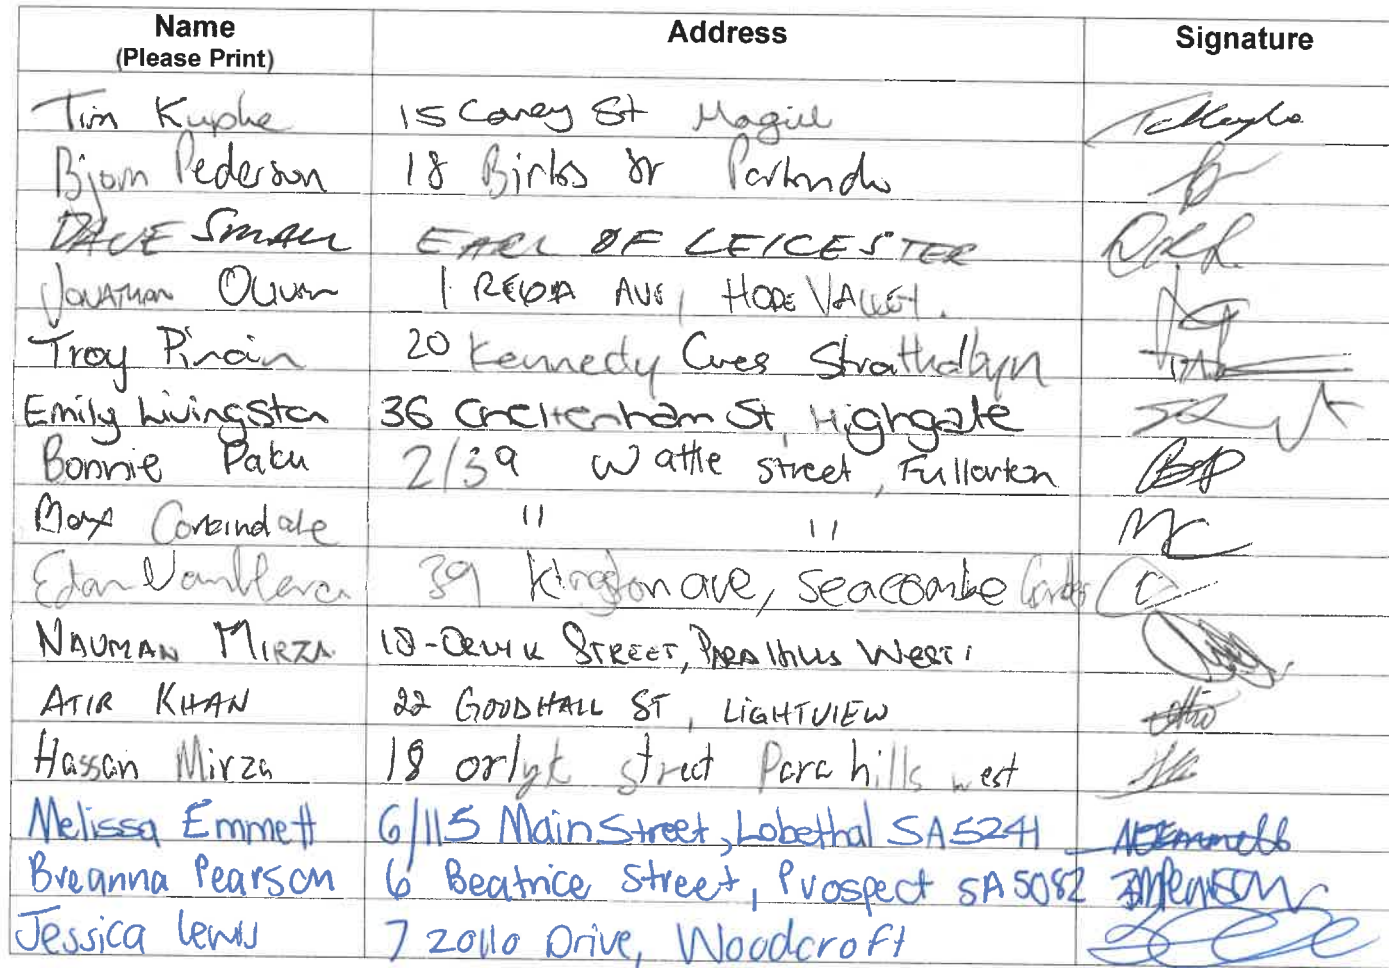 Name Address Signature
(Please Print)
Tim Kuphe 15 Carey St Magill
Bjorn Pederson 18 Birks Dr
DAVE SMALL EARL OF LEICESTER
JONATHAN OLIVER 1 AVE, HOPE VALLEY.
Troy 20 Kennedy Cres Strathalbyn
Emily Livingston 36 Cheltenham St, Highgate
Bonnie Paku 2/39 Wattle street, Fullarton
Max " "
Edan 39 Kingston ave, Seacombe Gardens
NAUMAN MIRZA 18- STREET, PARA HILLS WEST
ATIR KHAN 22 GOODHALL ST, LIGHTVIEW
Hassan Mirza 18 street Para hills west
Melissa Emmett 6/115 Main Street, Lobethal SA 5241 MEmmett
Breanna Pearson 6 Beatrice Street, Prospect SA 5082 BMPearson
Jessica Lewis 7 Zollo Drive, Woodcroft